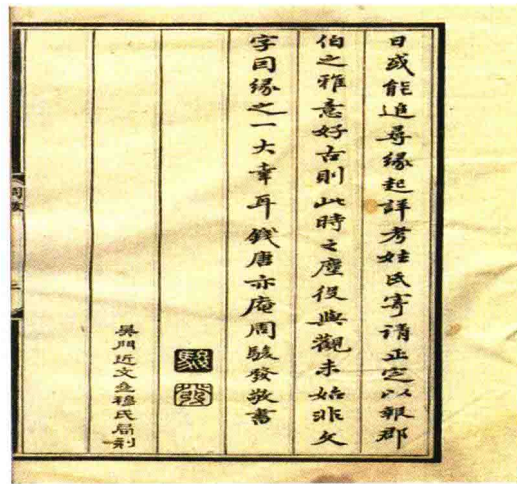 日或能進尋緣起詳考姓氏寄請正定以報郡
伯之雅意好古則此時之塵役與觀未始非文
字因緣之一大幸耳錢唐亦庵周駿發敬書
駿
發
吳門近文齋穆氏局刻
周敘
二